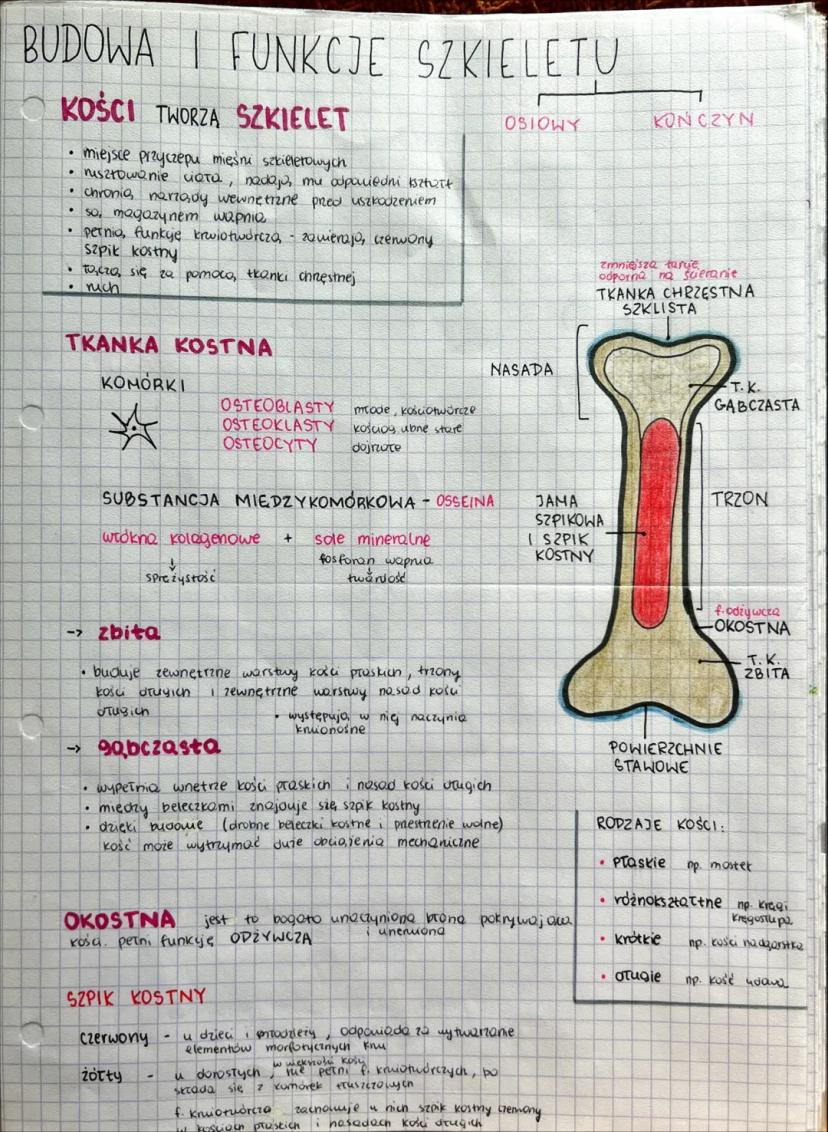 BUDOWA I FUNKCJE SZKIELETU
OSIOWY KOŃCZYN
KOŚCI TWORZĄ SZKIELET
• miejsce przyczepu mięśni szkieletowych
• rusztowanie ciała, nadają mu odpowiedni kształt
• chronią narządy wewnętrzne przed uszkodzeniem
• są magazynem wapnia
• pełnią funkcję krwiotwórczą - zawierają czerwony
szpik kostny
• łączą się za pomocą tkanki chrzęstnej
• ruch
TKANKA KOSTNA
KOMÓRKI
OSTEOBLASTY młode, kościotwórcze
OSTEOKLASTY kościogubne stare
OSTEOCYTY dojrzałe
SUBSTANCJA MIĘDZYKOMÓRKOWA - OSSEINA
włókna kolagenowe + sole mineralne
fosforan wapnia
sprężystość twardość
→ zbita
• buduje zewnętrzne warstwy kości płaskich, trzony
kości długich i zewnętrzne warstwy nasad kości
długich
• występują w niej naczynia
krwionośne
→ gąbczasta
• wypełnia wnętrze kości płaskich i nasad kości długich
• między beleczkami znajduje się szpik kostny
• dzięki budowie (drobne beleczki kostne i przestrzenie wolne)
kość może wytrzymać duże obciążenia mechaniczne
OKOSTNA jest to bogato unaczyniona błona pokrywająca
i unerwiona
kości. pełni funkcję ODŻYWCZĄ
SZPIK KOSTNY
czerwony - u dzieci i młodzieży, odpowiada za wytwarzanie
elementów morfotycznych krwi
w większości kości
żółty - u dorosłych, nie pełni f. krwiotwórczych, bo
składa się z komórek tłuszczowych
f. krwiotwórczą zachowuje u nich szpik kostny czerwony
w kościach płaskich i nasadach kości długich
zmniejsza tarcie
odporna na ścieranie
TKANKA CHRZĘSTNA
SZKLISTA
NASADA
T.K.
GĄBCZASTA
JAMA
SZPIKOWA
I SZPIK
KOSTNY
TRZON
f. odżywcza
OKOSTNA
T.K.
ZBITA
POWIERZCHNIE
STAWOWE
RODZAJE KOŚCI:
• płaskie np. mostek
• różnokształtne np. kręgi
kręgosłupa
• krótkie np. kości nadgarstka
• długie np. kość udowa